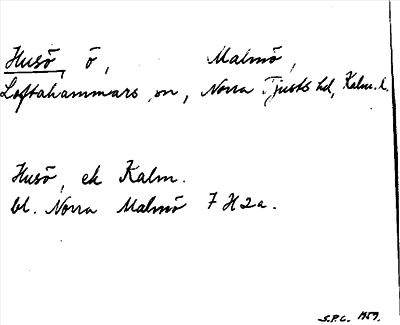 Husö, ö, Malmö,
Loftahammars sn, Norra Tjusts hd, Kalm. l.
Husö, ek Kalm.
bl. Norra Malmö 7 H 2a.
S.P.C. 1959.